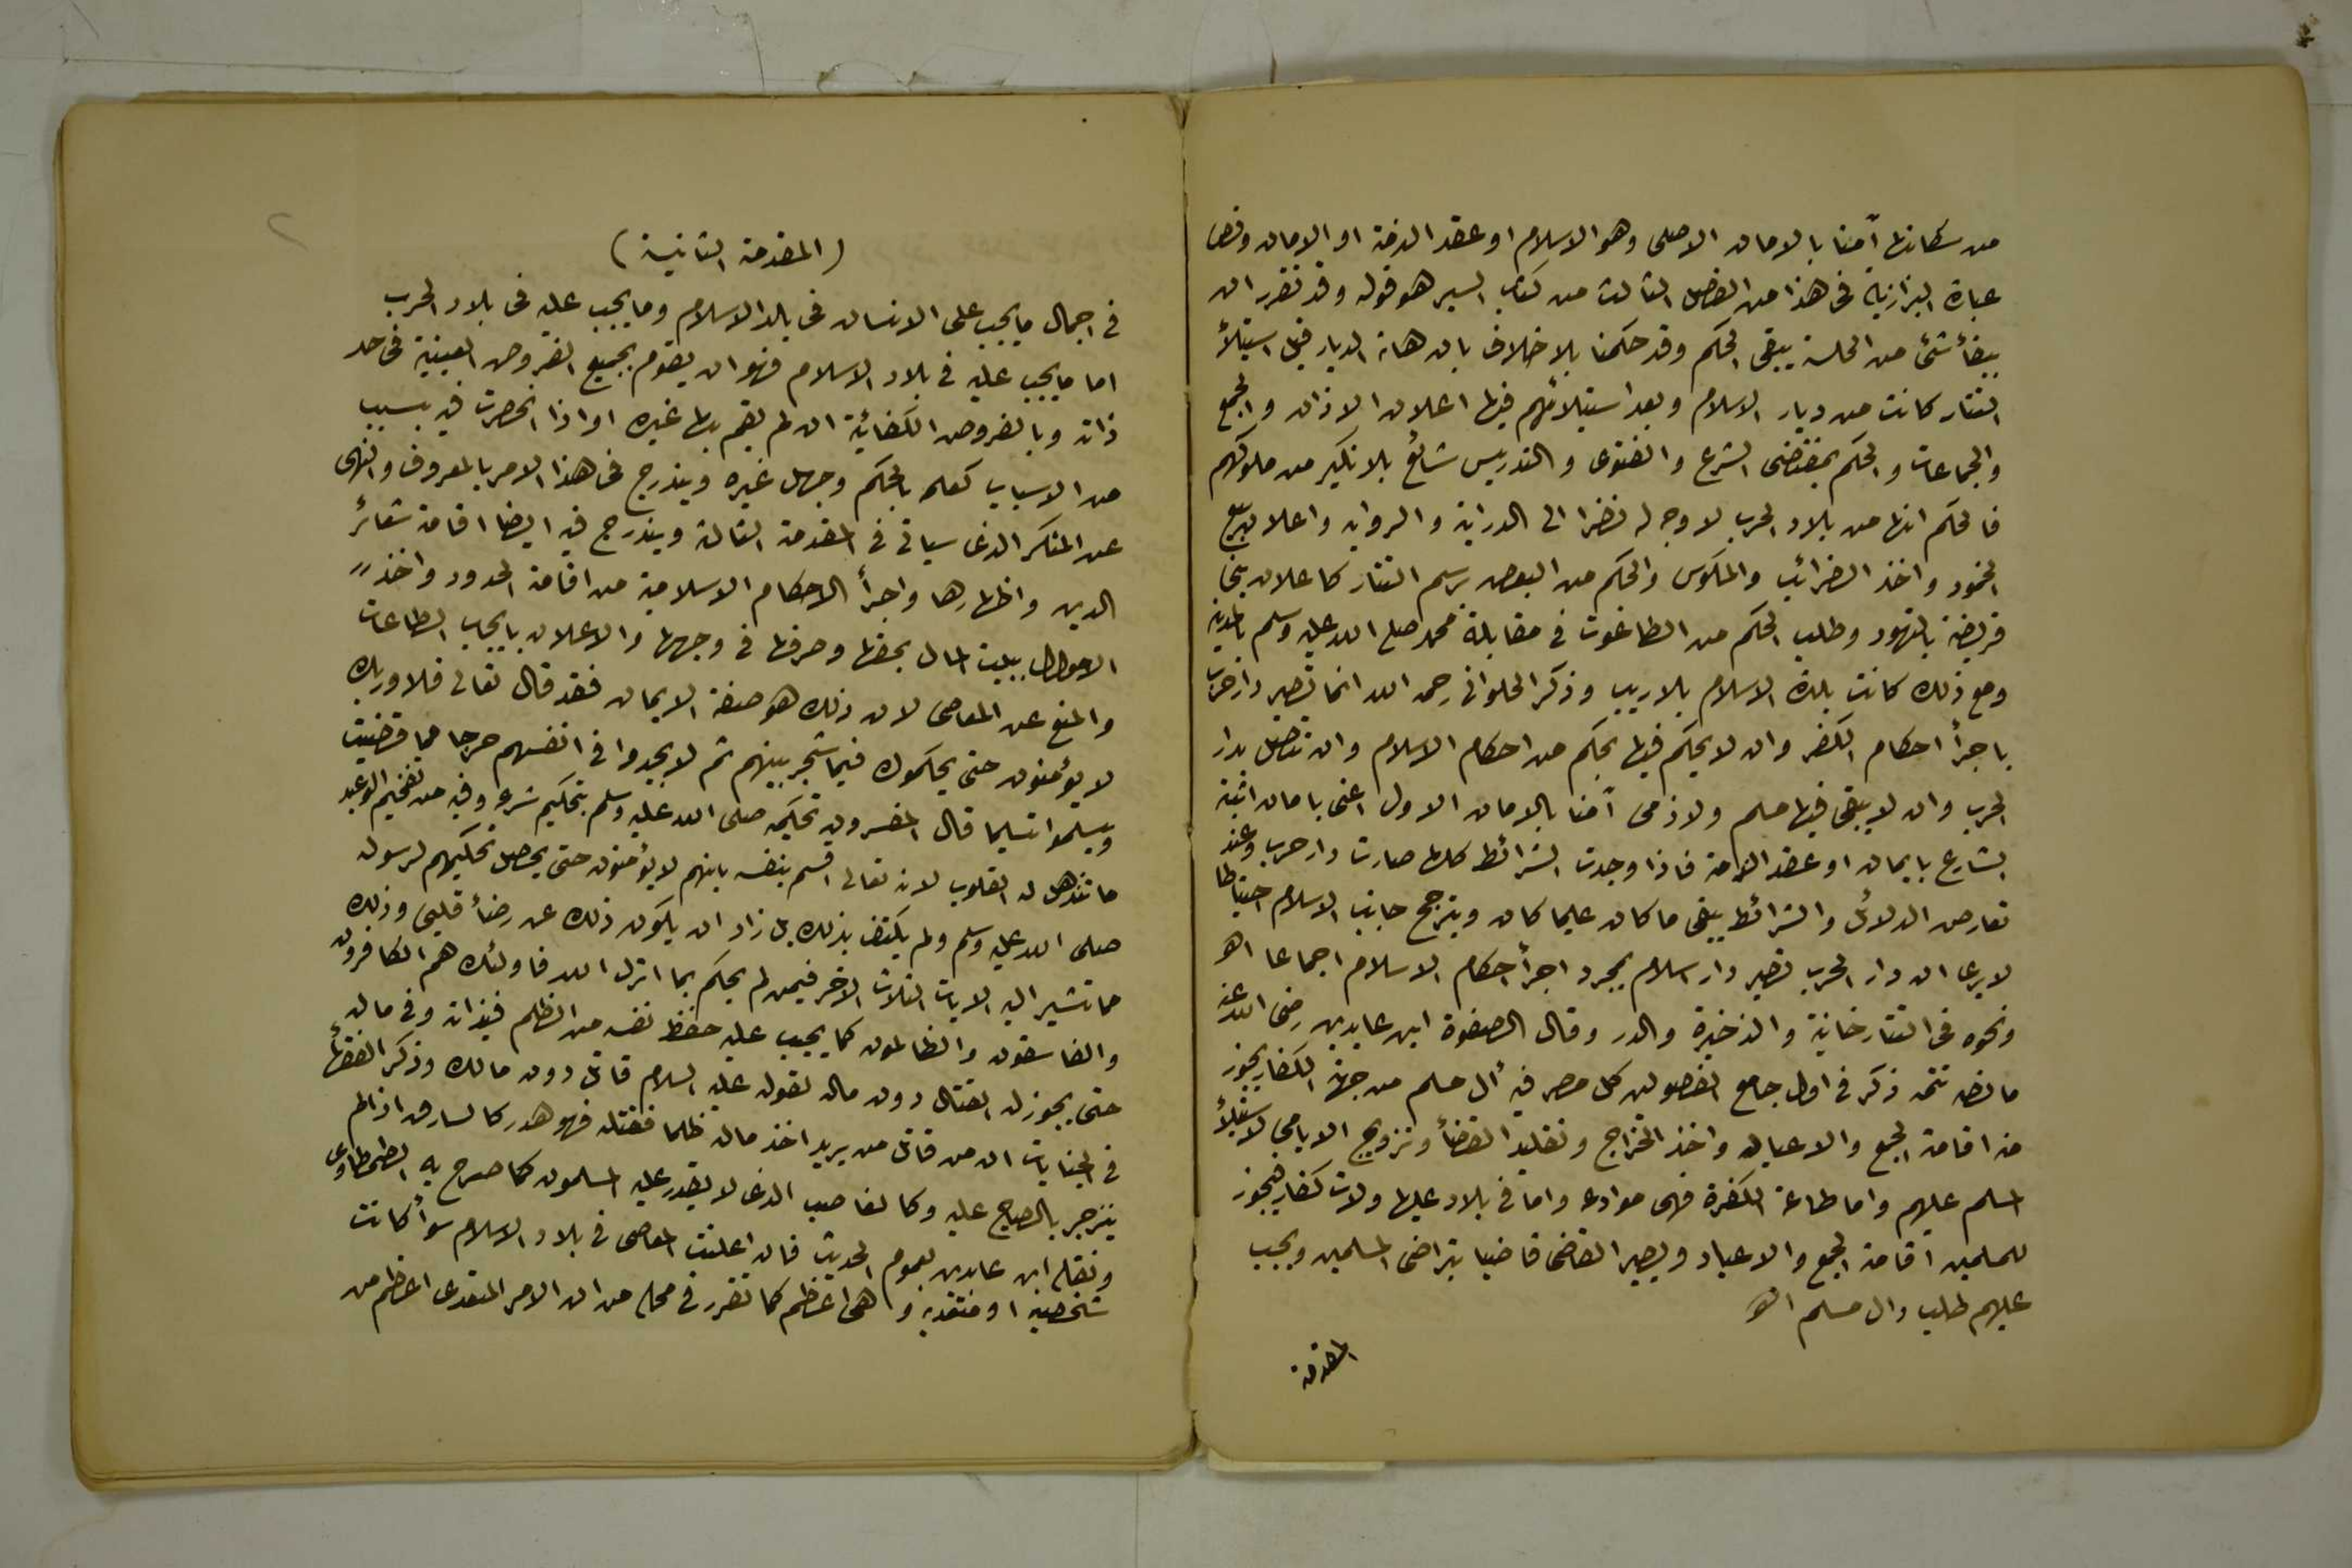 من سكانها آمنا بالامان الاصلى وهو الاسلام او عقد الذمة او الامان ونص
عبارة البزازية فى هذا من الفصل الثالث من كتاب السير هو قوله وقد تقرر ان
ببقأ شئ من العلة يبقى الحكم وقد حكمنا بلا خلاف بان هذه الديار قبل استيلأ
التتار كانت من ديار الاسلام وبعد استيلائهم فيها اعلان الاذان والجمع
والجماعات والحكم بمقتضى الشرع والفتوى والتدريس شائع بلا نكير من ملوكهم
فالحكم انها من بلاد الحرب لا وجه له نظرا الى الدراية والرواية واعلان بيع
الخمور واخذ الضرائب والمكوس والحكم من البعض برسم التتار كاعلان بنى
قريضة بالتهود وطلب الحكم من الطاغوت فى مقابلة محمد صلى الله عليه وسلم بالمدينة
ومع ذلك كانت بلدة الاسلام بلا ريب وذكر الحلوانى رحمه الله انما تصير دار حرب
باجرأ احكام الكفر وان لا يحكم فيها بحكم من احكام الاسلام وان تتصل بدار
الحرب وان لا يبقى فيها مسلم ولا ذمى آمنا بالامان الاول اعنى بامان اثبته
الشارع بايمان او عقد الذمة فاذا وجدت الشرائط كلها صارت دار حرب وعند
تعارض الدلائل والشرائط يبقى ما كان عليما كان ويترجح جانب الاسلام احتياطا
لا يرى ان دار الحرب تصير دار اسلام بمجرد اجرأ احكام الاسلام اجماعا اهـ
ونحوه فى التتارخانية والذخيرة والدرر وقال الصفوة ابن عابدين رضى الله عنه
ما نصه تتمه ذكر فى اول جامع الفصولين كل مصر فيه وال مسلم من جهة الكفار يجوز
منه اقامة الجمع والاعياد واخذ الخراج وتقليد القضأ وتزويج الايامى لاستيلأ
المسلم عليهم واما طاعة الكفرة فهى موادعه واما فى بلاد عليها ولات كفار فيجوز
للمسلمين اقامة الجمع والاعياد ويصير القاضى قاضيا بتراضى المسلمين ويجب
عليهم طلب وال مسلم اهـ
المقدمة
٢
(المقدمة الثانية)
فى اجمال ما يجب على الانسان فى بلاد الاسلام وما يجب عليه فى بلاد الحرب
اما ما يجب عليه فى بلاد الاسلام فهو ان يقوم بجميع الفروض العينية فى حد
ذاته وبالفروض الكفائية ان لم يقم بها غيره او اذا انحصرت فيه بسبب
من الاسباب كعلمه بالحكم وجهل غيره ويندرج فى هذا الامر بالمعروف والنهى
عن المنكر الذى سيأتى فى المقدمة الثالثة ويندرج فيه ايضا اقامة شعائر
الدين واظهارها واجرأ الاحكام الاسلامية من اقامة الحدود واخذ
الاموال لبيت المال بحقها وصرفها فى وجهها والاعلان بايجاب الطاعات
والمنع عن المعاصى لان ذلك هو صفة الايمان فقد قال تعالى فلا وربك
لا يؤمنون حتى يحكموك فيما شجر بينهم ثم لا يجدوا فى انفسهم حرجا مما قضيت
ويسلموا تسليما قال المفسرون تحكيمه صلى الله عليه وسلم بتحكيم شرعه وفيه من تفخيم الوعيد
ما تذهل له القلوب لانه تعالى اقسم بنفسه بانهم لا يؤمنون حتى يحصل تحكيمهم لرسوله
صلى الله عليه وسلم ولم يكتف بذلك بل زاد ان يكون ذلك عن رضأ قلبى وذلك
ما تشير اليه الايات الثلاث الاخر فيمن لم يحكم بما انزل الله فاولئك هم الكافرون
والفاسقون والظالمون كما يجب عليه حفظ نفسه من الظلم فى ذاته وفى ماله
حتى يجوز له القتال دون ماله لقوله عليه السلام قاتل دون مالك وذكر الفقهأ
فى الجنايات ان من قاتل من يريد اخذ ماله ظلما فقتله فهو هدر كالسارق اذا لم
ينزجر بالصياح عليه وكالغاصب الذى لا يقدر عليه المسلمون كما صرح به الطحطاوى
ونقله ابن عابدين بعموم الحديث فان اعلنت المعاصى فى بلاد الاسلام سوأ كانت
شخصية او متعديه وهى اعظم كما تقرر فى محله من ان الامر المتعدى اعظم من